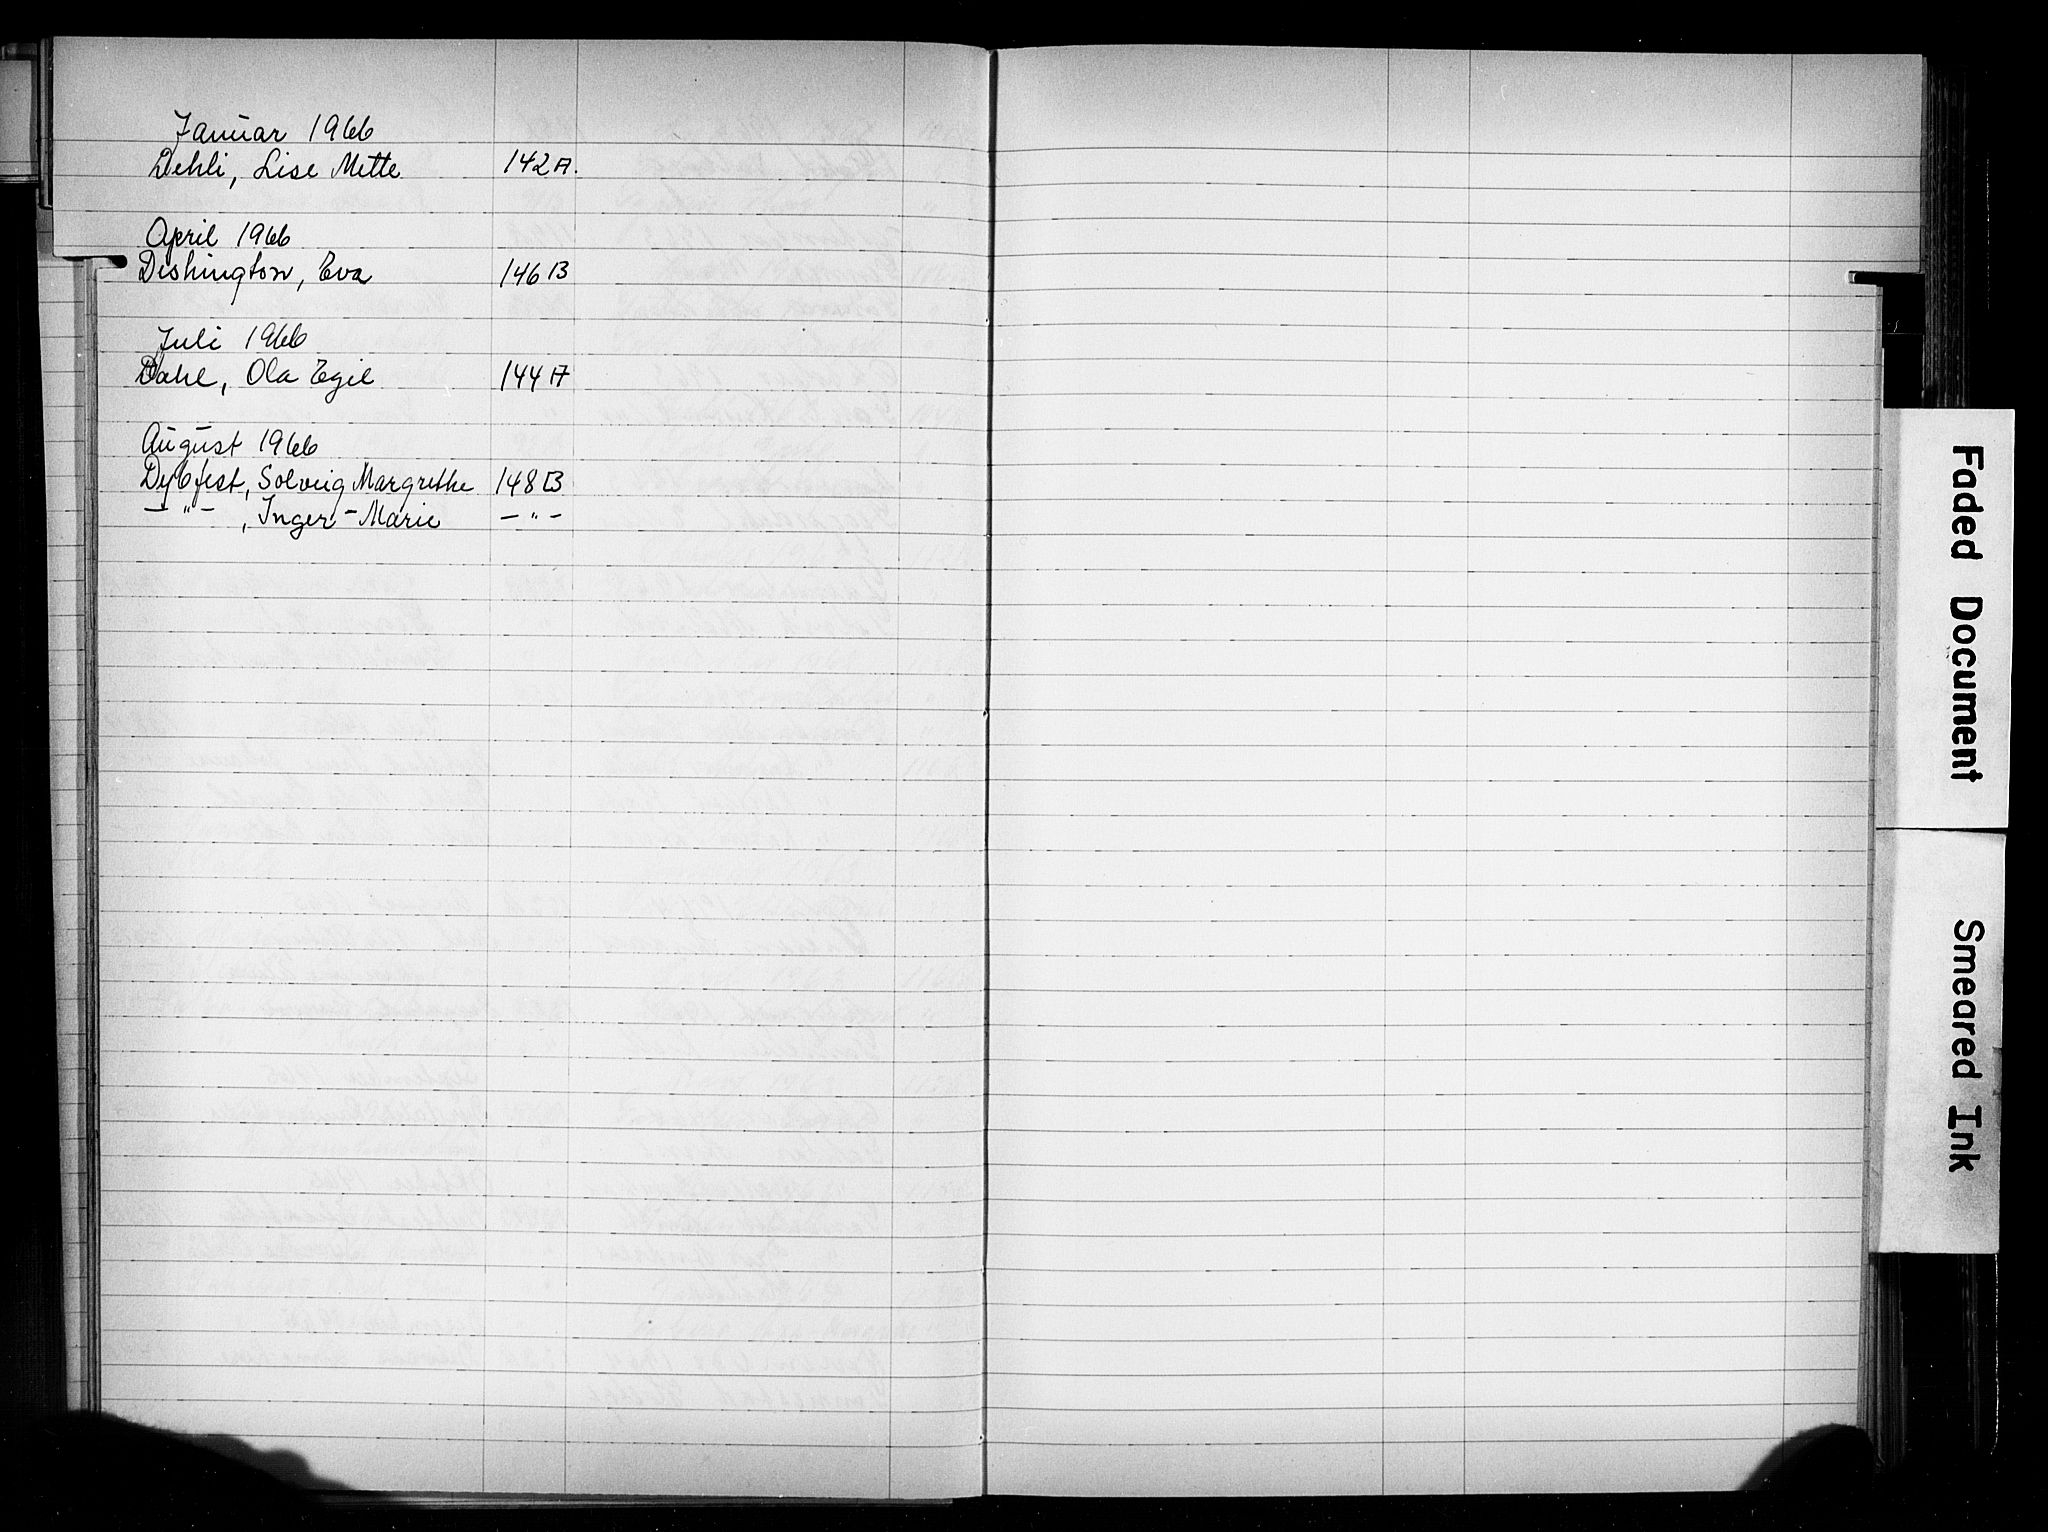 Januar 1966
Dehli, Lise Mette 142 A.
April 1966
Dishington, Eva 146 B
Juli 1966
Dahl, Ola Egil 144 A
August 1966
Dybfest, Solveig Margrethe 148 B
— " — , Inger-Marie — " —
Faded Document
Smeared Ink